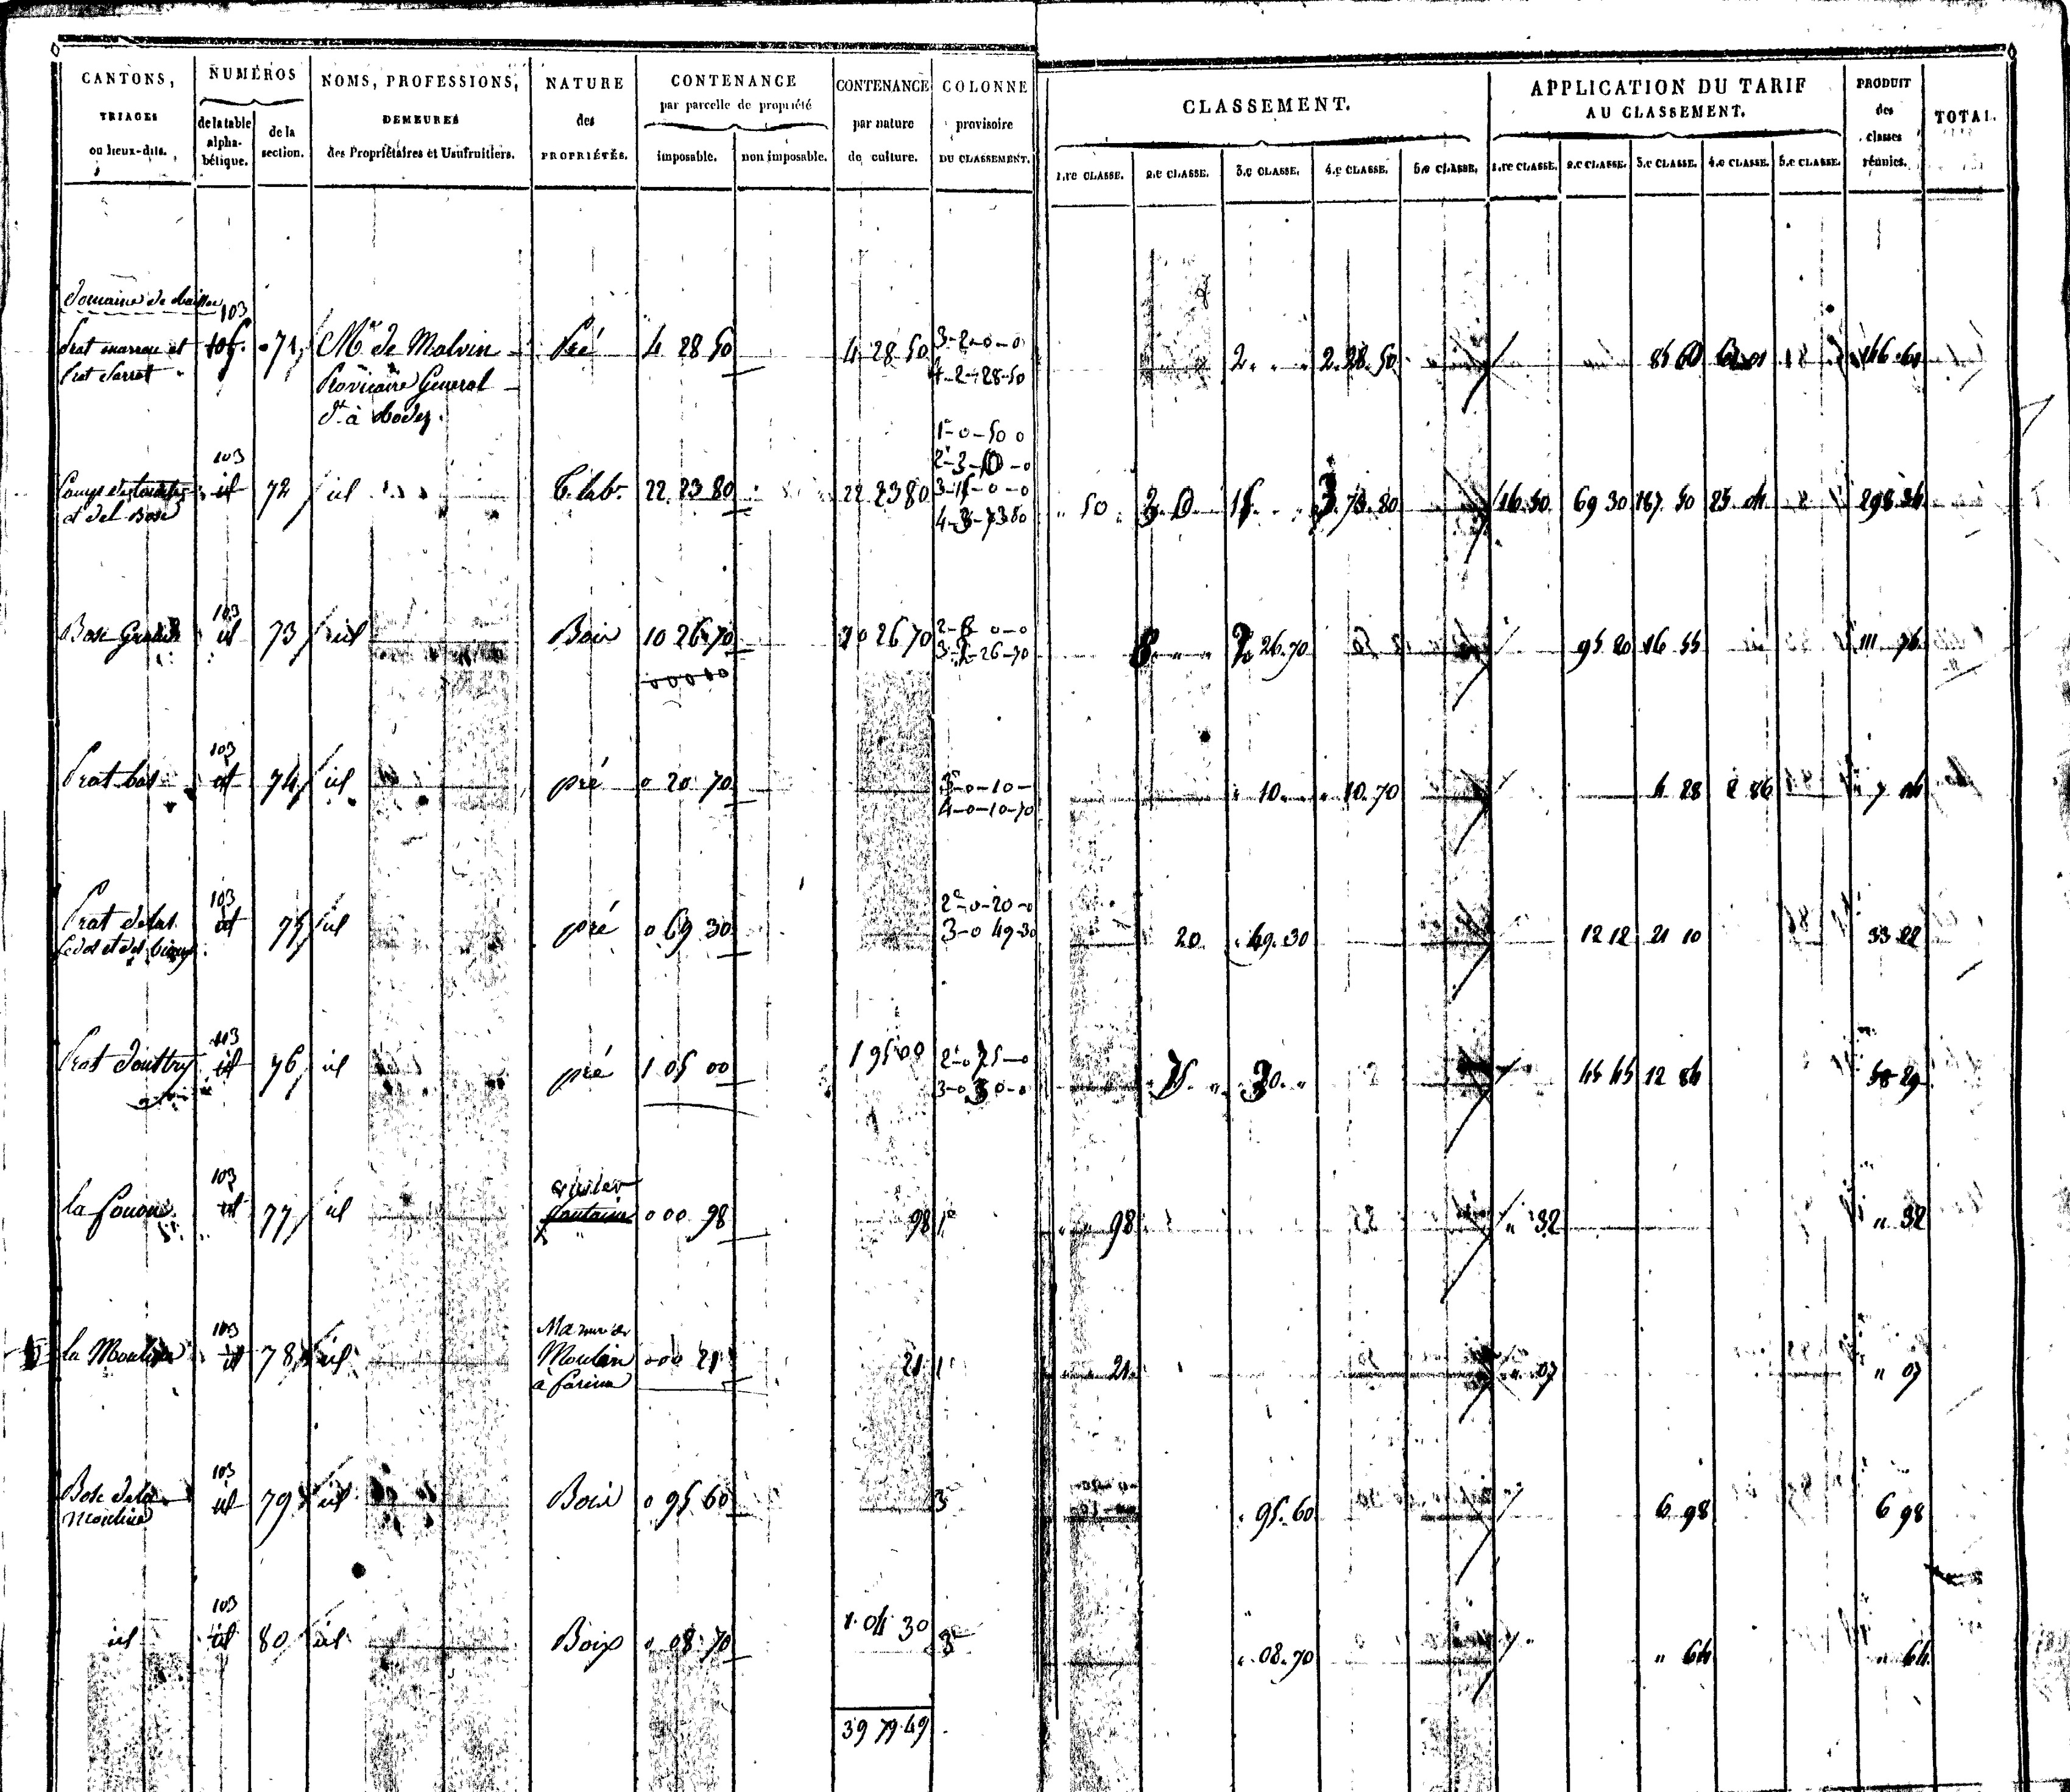 CANTONS, TRIAGES ou lieux-dits.
NUMÉROS de la table alphabétique. de la section.
NOMS, PROFESSIONS, DEMEURES des Propriétaires et Usufruitiers.
NATURE des PROPRIÉTÉS.
CONTENANCE par parcelle de propriété imposable. non imposable.
CONTENANCE par nature de culture.
COLONNE provisoire DU CLASSEMENT.
CLASSEMENT.
1.re CLASSE. 2.e CLASSE. 3.e CLASSE. 4.e CLASSE. 5.e CLASSE.
APPLICATION DU TARIF AU CLASSEMENT.
1.re CLASSE. 2.e CLASSE. 3.e CLASSE. 4.e CLASSE. 5.e CLASSE.
PRODUIT des classes réunies.
TOTAL.
Domaine de
103
Prat marrou et 71 Mr de Malvin Pré 4 28 50 4 28 50 3-2-0-0 2 2.28.50 85 60
Prat Sarrat Général 4-2-28-50
dt à Rodez.
1e-0-50 0
103 2e-3-10-0
id 72 id T. lab. 22 23 80 22 23 80 3-15-0-0 50 3.10 15 3.73.80 16 50 69 30 187 50 25 04 298 34
et del Bosc 4-3-7380
103
Bosc Grand id 73 id Bois 10 26 70 10 26 70 2-8 0-0 8 2 26.70 95 20 16 55 111 75
3-2-26-70
103
Prat bas id 74 id pré 0 20 70 3-0-10- 10 10.70 4 28 2 86 7 14
4-0-10-70
103 2e-0-20-0
Prat de las id 75 id pré 0 69 30 3-0 49-30 20 49.30 12 12 21 10 33 22
103
Prat id 76 id pré 1 05 00 1 95 00 2e-0 75-0 75 30 45 45 12 84 58 29
3-0 30-0
103 vivier
la fouon id 77 id fontaine 0 00 98 98 1e 98 32 " 32
103 Mazure de
la Moulin id 78 id Moulin 0 00 21 21 1e 21 07 " 07
à farine
103
Bosc de la id 79 id Bois 0 95 60 3e 95.60 6 98 6 98
Mouline
103
id id 80 id Bois 0 08 70 1 04 30 3e 08.70 " 64 " 64
39 79 49